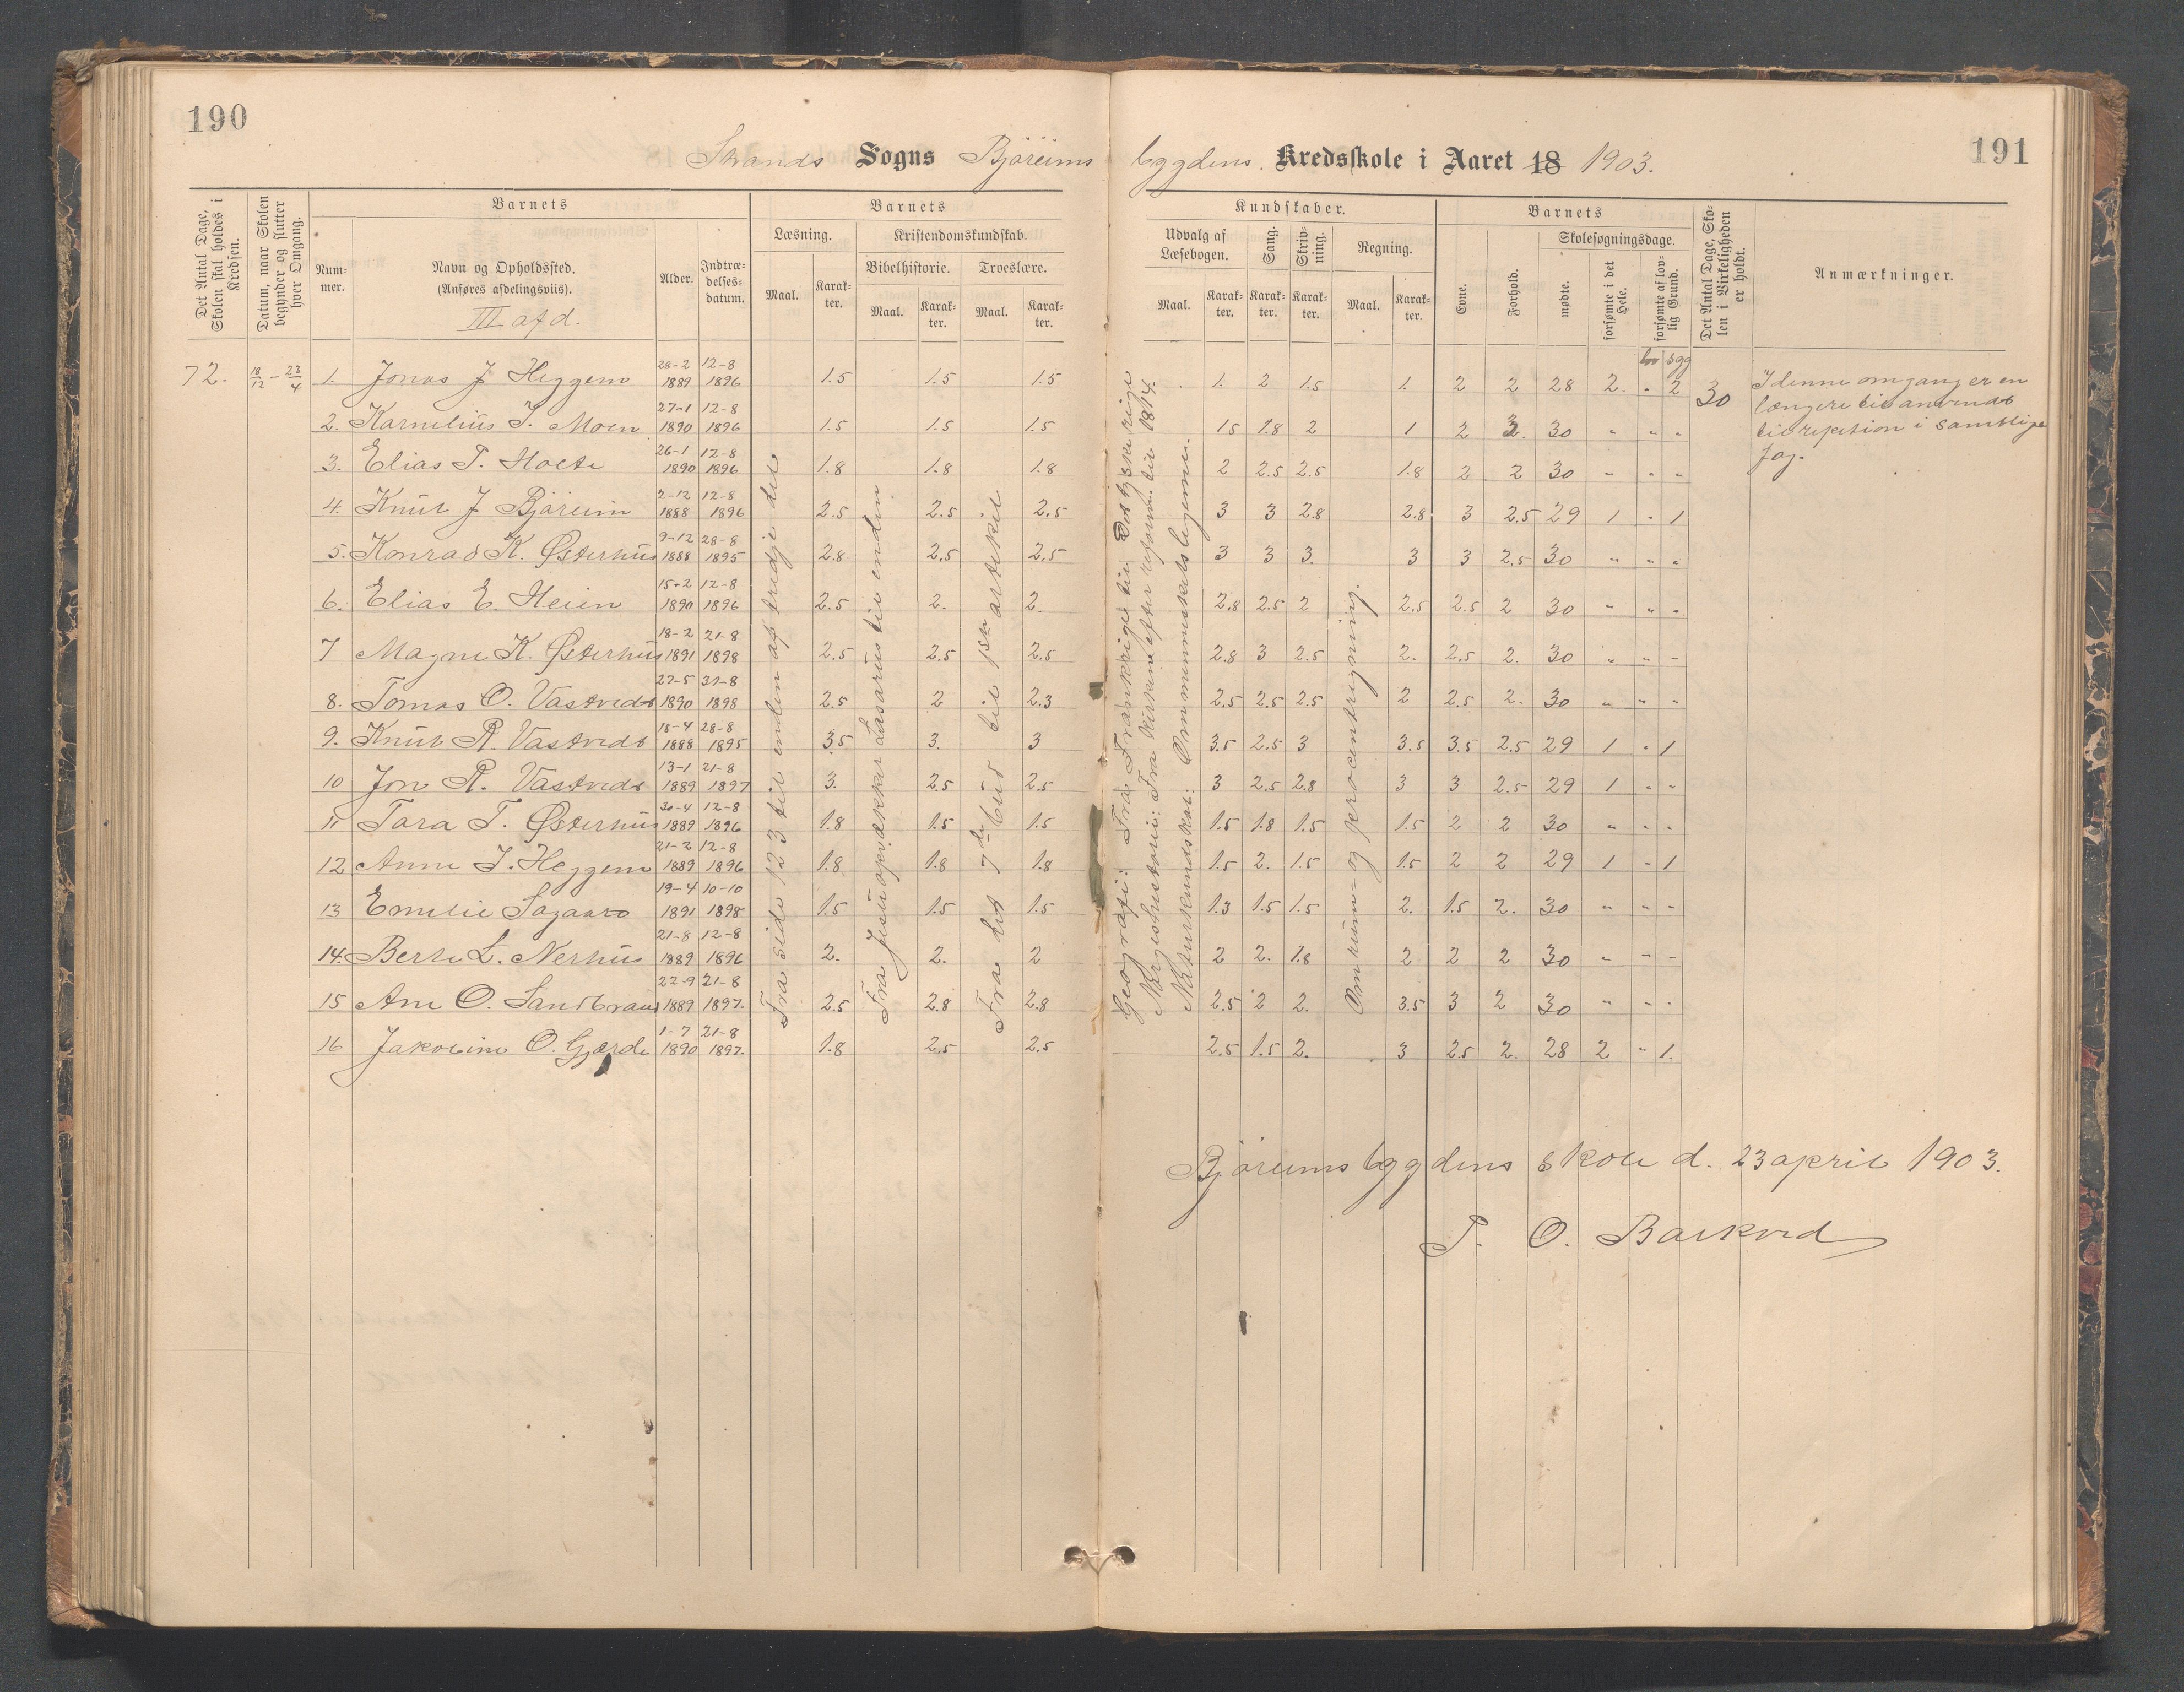 190
191
Strands Sogns Björeims bygdens. Kredsskole i Aaret 18 1903.
Det Antal Dage, Skolen skal holdes i Kredsen.
Datum, naar Skolen begynder og slutter hver Omgang.
Barnets
Barnets
Kundskaber.
Barnets
Det Antal Dage, Skolen i Virkeligheden er holdt.
Anmærkninger.
Nummer.
Navn og Opholdssted.
(Anføres afdelingsviis).
III afd.
Alder.
Indtrædelsesdatum.
Læsning.
Kristendomskundskab.
Bibelhistorie.
Troeslære.
Maal.
Karakter.
Maal.
Karakter.
Maal.
Karakter.
Udvalg af Læsebogen.
Sang.
Skrivning.
Regning.
Maal.
Karakter.
Karakter.
Karakter.
Maal.
Karakter.
Evne.
Forhold.
Skolesøgningsdage.
mødte.
forsømte i det Hele.
forsømte af lovlig Grund.
lov sgg
72. 18/12 - 23/4 1. Jonas J Heggem 28-2 1889 12-8 1896 1.5 1.5 1.5 1. 2 1.5 1. 2 2 28 2. " 2 30
2. Karnelius T. Moen 27-1 1890 12-8 1896 1.5 1.5 1.5 1.5 1.8 2 1 2 2. 30 " " "
3. Elias T. Holte 26-1 1890 12-8 1896 1.8 1.8 1.8 2 2.5 2.5 1.8 2 2 30 " " "
4. Knut J Björeim 2-12 1888 12-8 1896 2.5 2.5 2.5 3 3 2.8 2.8 3 2.5 29 1 " 1
5. Konrad K. Østerhus 9-12 1888 28-8 1895 2.8 2.5 2.5 3 3 3. 3 3 2.5 30 " " "
6. Elias E. Heien 15-2 1890 12-8 1896 2.5 2. 2. 2.8 2.5 2 2.5 2.5 2 30 " " "
7 Magne K. Østerhus 18-2 1891 21-8 1898 2.5 2.5 2.5 2.8 3 2.5 2. 2.5 2. 30 " " "
8. Tomas O. Vastvedt 27-5 1890 31-8 1898 2.5 2 2.3 2.5 2.5 2.5 2 2.5 2. 30 " " "
9. Knut R. Vastvedt 18-4 1888 28-8 1895 3.5 3. 3 3.5 2.5 3 3.5 3.5 2.5 29 1 " 1
10 Jon R. Vastvedt 13-1 1889 21-8 1897 3. 2.5 2.5 3 2.5 2.8 3 3 2.5 29 1 " "
11 Tara T. Østerhus 30-4 1889 12-8 1896 1.8 1.5 1.5 1.5 1.8 1.5 1.5 2 2 30 " " "
12 Anne J. Heggem 21-2 1889 12-8 1896 1.8 1.8 1.8 1.5 2. 1.5 1.5 2 2 29 1 " 1
13 Emelie Sagaard 19-4 1891 10-10 1898 1.5 1.5 1.5 1.3 1.5 1.5 2. 1.5 2. 30 " " "
14. Berte L. Nerhus 21-8 1889 12-8 1896 2. 2. 2 2 2. 1.8 2 2 2 30 " " "
15 Ane O. Sandbraut 22-9 1889 21-8 1897. 2.5 2.8 2.8 2.5 2 2. 3.5 3 2 30 " " "
16 Jakobine O. Gjærde 1-7 1890 21-8 1897. 1.8 2.5 2.5 2.5 1.5 2. 3 2.5 2. 28 2 " 1.
Fra side 123 til enden af tredje del
Fra Jesu opvækker Lasarus til enden
Fra det 7de bud til 1ste artikel
Geografi: Fra Frankrige til Det tyske rige
Norgeshistorie: Fra Kirken efter reform. til 1814.
Naturkundskab: Om menneskets legeme.
Om rum- og procentregning.
I denne omgang er en
længere tid anvendt
til repetion i samtlige
fag.
Björeimsbygdens skole d. 23 april 1903.
T. O. Barkved